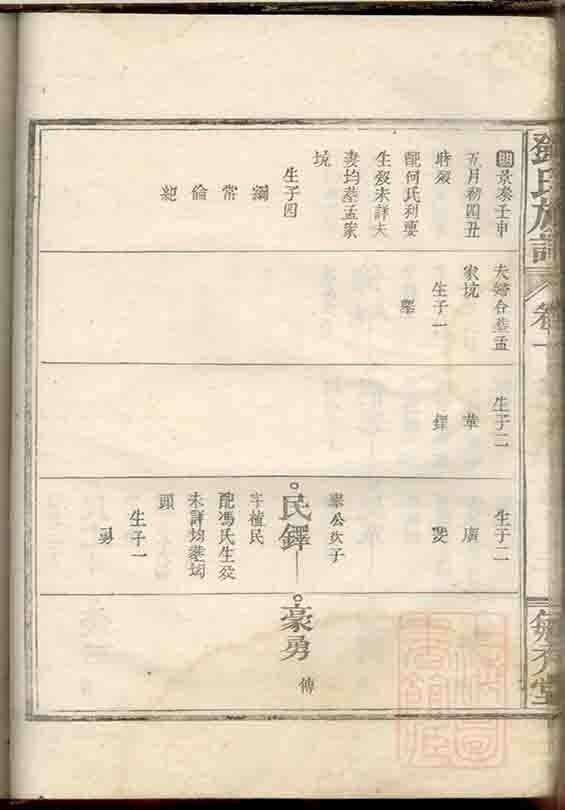 鄧氏族譜
卷一
明景泰壬申
五月初四丑
時歿
配何氏利要
生歿未詳夫
妻均塟孟家
境
生子四
綱
常
倫
紀
夫婦合塟孟
家境
生子一
舉
生子二
華
鐸
生子二
廣
雯
舉公次子
民鐸
字植民
配馮氏生歿
未詳均塟坳
頭
生子一
勇
豪勇
傳